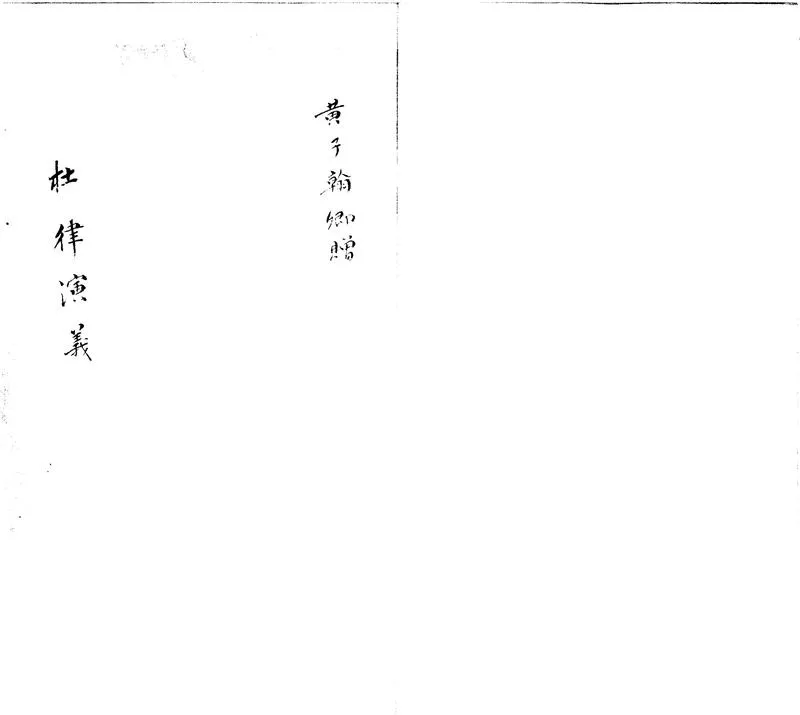 黃子翰卿贈
杜律演義